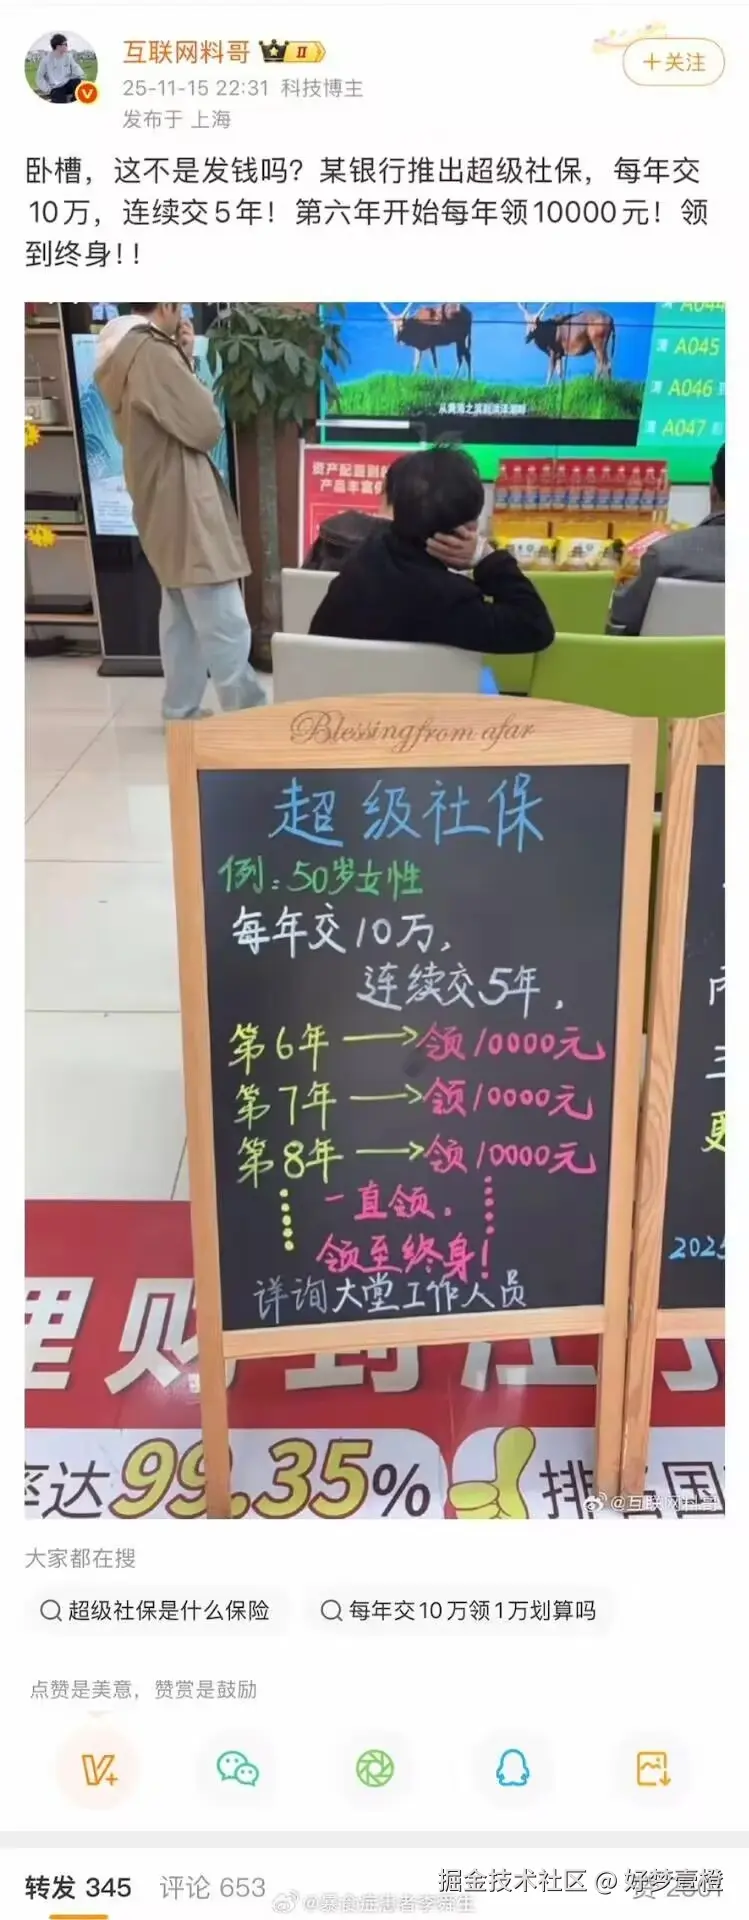 互联网料哥
II
+关注
25-11-15 22:31 科技博主
发布于 上海
卧槽，这不是发钱吗？某银行推出超级社保，每年交
10万，连续交5年！第六年开始每年领10000元！领
到终身！！
A044
A045
A046
A047
资产配置
产品丰富
Blessing from afar
超级社保
例：50岁女性
每年交10万，
连续交5年，
第6年→领10000元
第7年→领10000元
第8年→领10000元
一直领，
领至终身！
详询大堂工作人员
更
2025
理财到江
率达99.35%
排名国
@互联网料哥
大家都在搜
超级社保是什么保险
每年交10万领1万划算吗
点赞是美意，赞赏是鼓励
转发 345
评论 653
掘金技术社区 @ 好梦壹橙